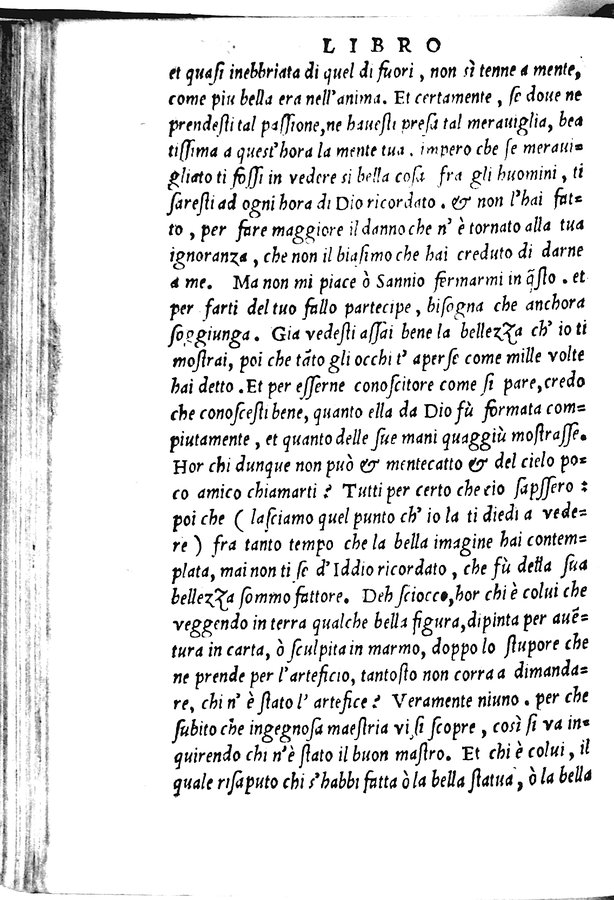 LIBRO
et quaſi inebbriata di quel di fuori, non ſi tenne a mente,
come piu bella era nell'anima. Et certamente, ſe doue ne
prendeſti tal paſſione, ne haueſti preſa tal merauiglia, bea
tiſſima a queſt'hora la mente tua. impero che ſe meraui=
gliato ti foſſi in vedere ſi bella coſa fra gli huomini, ti
ſareſti ad ogni hora di Dio ricordato. & non l'hai fat=
to, per fare maggiore il danno che n'è tornato alla tua
ignoranza, che non il biaſimo che hai creduto di darne
a me. Ma non mi piace ò Sannio fermarmi in q̃ſto. et
per farti del tuo fallo partecipe, biſogna che anchora
ſoggiunga. Gia vedeſti aſſai bene la bellezza ch'io ti
moſtrai, poi che tãto gli occhi t'aperſe come mille volte
hai detto. Et per eſſerne conoſcitore come ſi pare, credo
che conoſceſti bene, quanto ella da Dio fù formata com=
piutamente, et quanto delle ſue mani quaggiù moſtraſſe.
Hor chi dunque non può & mentecatto & del cielo po=
co amico chiamarti? Tutti per certo che cio ſapſſero:
poi che (laſciamo quel punto ch'io la ti diedi a vede=
re) fra tanto tempo che la bella imagine hai contem=
plata, mai non ti ſe d'Iddio ricordato, che fù della ſua
bellezza ſommo fattore. Deh ſciocco, hor chi è colui che
veggendo in terra qualche bella figura, dipinta per auẽ=
tura in carta, ò ſculpita in marmo, doppo lo ſtupore che
ne prende per l'arteficio, tantoſto non corra a dimanda=
re, chi n'è ſtato l'artefice? Veramente niuno. per che
ſubito che ingegnoſa maeſtria vi ſi ſcopre, così ſi va in=
quirendo chi n'è ſtato il buon maſtro. Et chi è colui, il
quale riſaputo chi s'habbi fatta ò la bella ſtatua, ò la bella